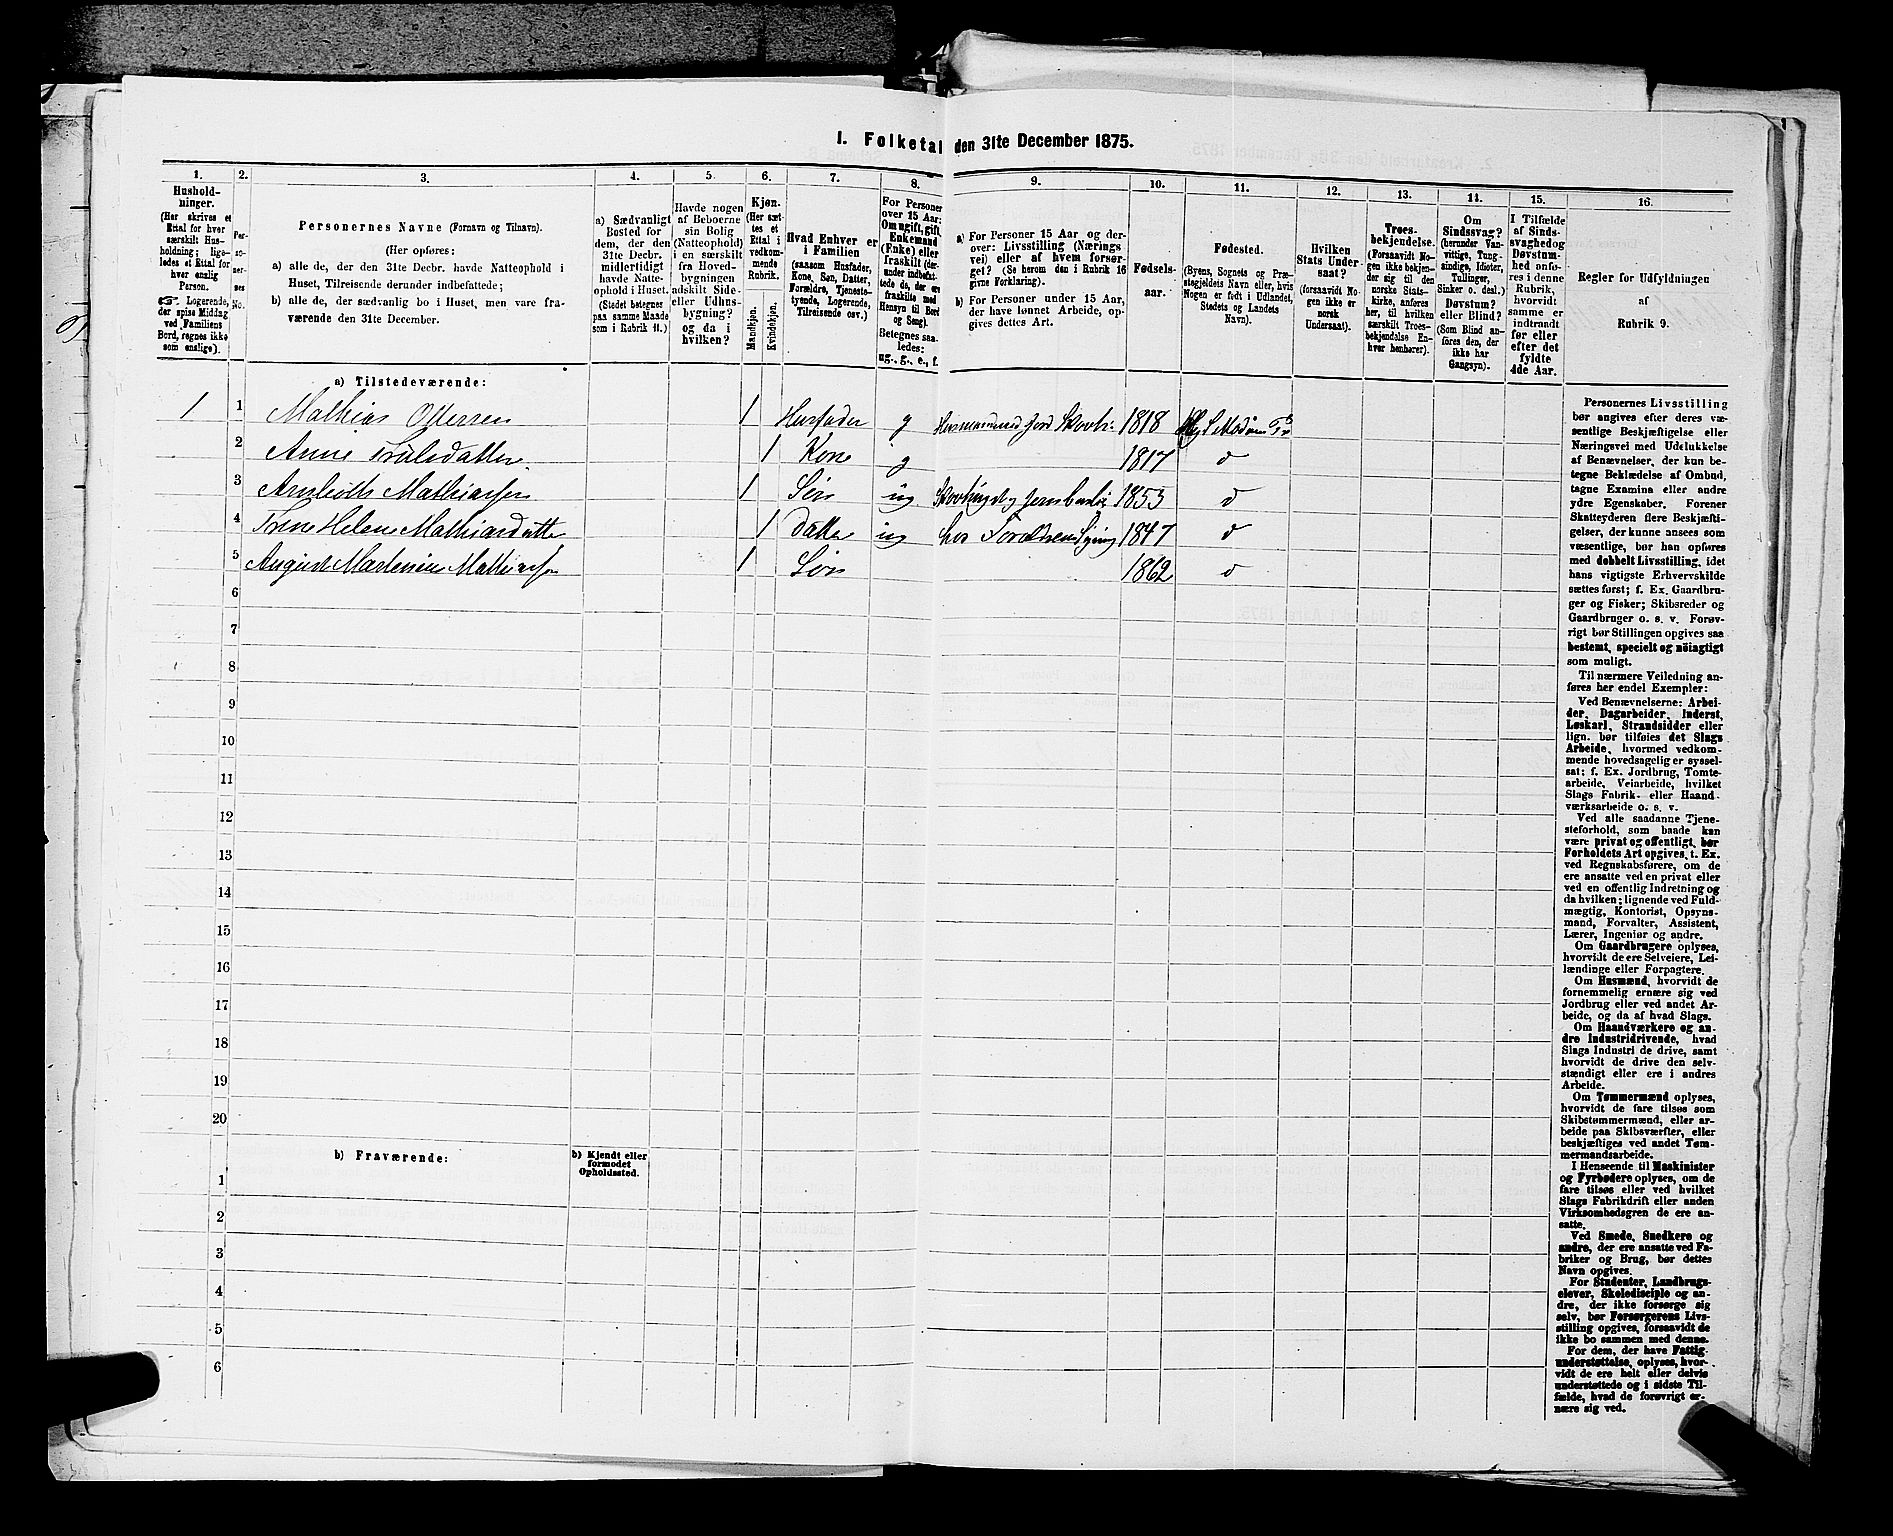 I. Folketal den 31te December 1875.
1.
Hushold-
ninger.
(Her skrives et
Ettal for hver
særskilt Hus-
holdning; lige-
ledes et Ettal for
hver enslig
Person.
Logerende,
der spise Middag
ved Familiens
Bord, regnes ikke
som enslige).
2.
Per-
so-
ner-
nes
No.
3.
Personernes Navne (Fornavn og Tilnavn).
(Her opføres:
a) alle de, der den 31te Decbr. havde Natteophold i
Huset, Tilreisende derunder indbefattede;
b) alle de, der sædvanlig bo i Huset, men vare fra-
værende den 31te December.
4.
a) Sædvanligt
Bosted for
dem, der den
31te Decbr.
midlertidigt
havde Natte-
ophold i Huset.
(Stedet betegnes
paa samme Maade
som i Rubrik 11.)
5.
Havde nogen
af Beboerne
sin Bolig
(Natteophold)
i en særskilt
fra Hoved-
bygningen
adskilt Side-
eller Udhus-
bygning?
og da i
hvilken?
6.
Kjøn.
(Her sæt-
tes et
Ettal i
vedkom-
mende
Rubrik.
Mandkjøn.
Kvindekjøn.
7.
Hvad Enhver er
i Familien
(saasom Husfader,
Kone, Søn, Datter,
Forældre, Tjeneste-
tyende, Logerende,
Tilreisende osv.)
8.
For Personer
over 15 Aar:
Om ugift, gift,
Enkemand
(Enke) eller
fraskilt (der-
under indbefat-
tede de, der ere
fraskilte med
Hensyn til Bord
og Seng).
Betegnes saa-
ledes:
ug., g., e., f.
9.
a) For Personer 15 Aar og der-
over: Livsstilling (Nærings
vei) eller af hvem forsør-
get? (Se herom den i Rubrik 16
givne Forklaring).
b) For Personer under 15 Aar,
der have lønnet Arbeide, op-
gives dettes Art.
10.
Fødsels-
aar.
11.
Fødested.
(Byens, Sognets og Præ-
stegjeldets Navn eller, hvis
Nogen er født i Udlandet,
Stedets og Landets
Navn).
12.
Hvilken
Stats Under-
saat?
(forsaavidt No-
gen ikke er
norsk
Undersaat).
13.
Troes-
bekjendelse.
(Forsaavidt No-
gen ikke bekjen-
der sig til den
norske Stats-
kirke, anføres
her, til hvilken
særskilt Troes-
bekjendelse En-
hver henhører).
14.
Om
Sindssvag?
(herunder Van-
vittige, Tung-
sindige, Idioter,
Tullinger,
Sinker o. desl.)
Døvstum?
eller Blind?
(Som Blind an-
føres den, der
ikke har
Gangsyn).
15.
I Tilfælde
af Sinds-
svaghed og
Døvstum-
hed anfø-
res i denne
Rubrik,
hvorvidt
samme er
indtraadt
før eller
efter det
fyldte
4de Aar.
16.
Regler for Udfyldningen
af
Rubrik 9.
a) Tilstedeværende:
1 1 Mathias Ottersen 1 Husfader g Husmand 1818
2 Anne Trulsdatter 1 Kone g 1817 do
3 Arnholth Mathiassen 1 Søn ug 1853 do
4 Trine Helene Mathiasdatter 1 Datter ug hos Forældrene Syning 1847 do
5 August Martenius Mathiassen 1 Søn 1862 do
6
7
8
9
10
11
12
13
14
15
16
17
18
19
20
b) Fraværende:
b) Kjendt eller
formodet
Opholdssted.
1
2
3
4
5
6
Personernes Livsstilling
bør angives efter deres væ-
sentlige Beskjæftigelse eller
Næringsvei med Udelukkelse
af Benævnelser, der kun be-
tegne Beklædelse af Ombud,
tagne Examina eller andre
ydre Egenskaber. Forener
Skatteyderen flere Beskjæfti-
gelser, der kunne ansees som
væsentlige, bør han opføres
med dobbelt Livsstilling, idet
hans vigtigste Erhvervskilde
sættes først; f. Ex. Gaardbru-
ger og Fisker; Skibsreder og
Gaardbruger o. s. v. Forøv-
rigt bør Stillingen opgives saa
bestemt, specielt og nöiagtigt
som muligt.
Til nærmere Veiledning an-
føres her endel Exempler:
Ved Benævnelserne: Arbei-
der, Dagarbeider, Inderst,
Løskarl, Strandsidder eller
lign. bør tilføies det Slags
Arbeide, hvormed vedkom-
mende hovedsagelig er syssel-
sat; f. Ex. Jordbrug, Tomte-
arbeide, Veiarbeide, hvilket
Slags Fabrik- eller Haand-
værksarbeide o. s. v.
Ved alle saadanne Tjene-
steforhold, som baade kan
være privat og offentligt, bør
Forholdets Art opgives, f. Ex.
ved Regnskabsførere, om de
ere ansatte ved en privat eller
ved en offentlig Indretning og
da hvilken; lignende ved Fuld-
mægtig, Kontorist, Opsyns-
mand, Forvalter, Assistent,
Lærer, Ingeniør og andre.
Om Gaardbrugere oplyses,
hvorvidt de ere Selveiere, Lei-
lændinge eller Forpagtere.
Om Husmænd, hvorvidt de
fornemmelig ernære sig ved
Jordbrug eller ved andet Ar-
beide, og da af hvad Slags.
Om Haandværkere og an-
dre Industridrivende, hvad
Slags Industri de drive, samt
hvorvidt de drive den selv-
stændigt eller ere i andres
Arbeide.
Om Tømmermænd oplyses,
hvorvidt de fare tilsøs som
Skibstømmermænd, eller ar-
beide paa Skibsværfter, eller
beskjæftiges ved andet Tøm-
mermandsarbeide.
I Henseende til Maskinister
og Fyrbødere oplyses, om de
fare tilsøs eller ved hvilket
Slags Fabrikdrift eller anden
Virksomhedsgren de ere an-
satte.
Ved Smede, Snedkere og
andre, der ere ansatte ved Fa-
briker og Brug, bør dettes
Navn opgives.
For Studenter, Landbrugs-
elever, Skoledisciple og an-
dre, der ikke forsørge sig
selv, bør Forsørgerens Livs-
stilling opgives, forsaavidt de
ikke bo sammen med denne.
For dem, der have Fattig-
understøttelse, oplyses, hvor-
vidt de ere helt eller delvis
understøttede og i sidste Til-
fælde, hvad de forøvrigt er-
nære sig ved.